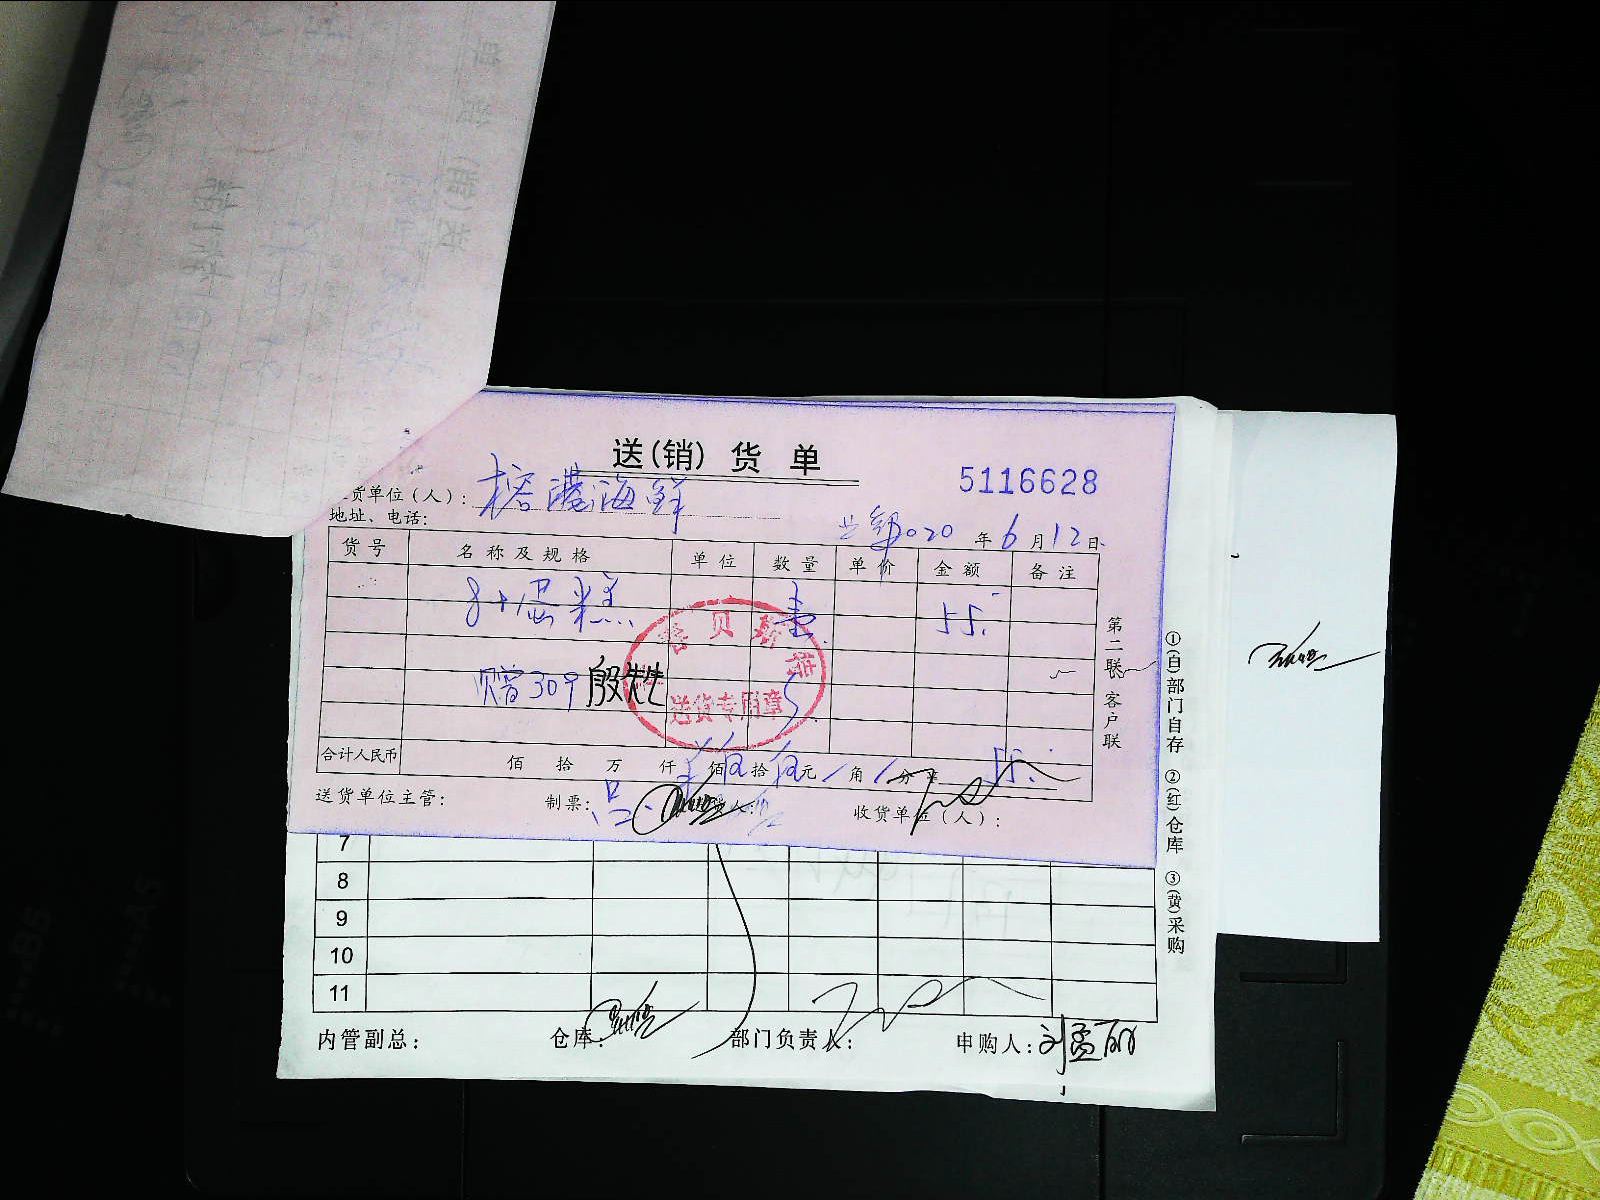 送(销)货单
5116628
货单位(人): 榕港海鲜
地址、电话:
2020年6月12日
货号 名称及规格 单位 数量 单价 金额 备注
8寸蛋糕 壹 55.
赠309 殷先生
贝斯
送货专用章
合计人民币 佰 拾 万 仟 佰伍拾伍元/角/分 55.
送货单位主管: 制票: 吕 收货单位(人):
第二联 客户联
7
8
9
10
11
①(白)部门自存 ②(红)仓库 ③(黄)采购
内管副总: 仓库: 部门负责人: 申购人:刘孟丽